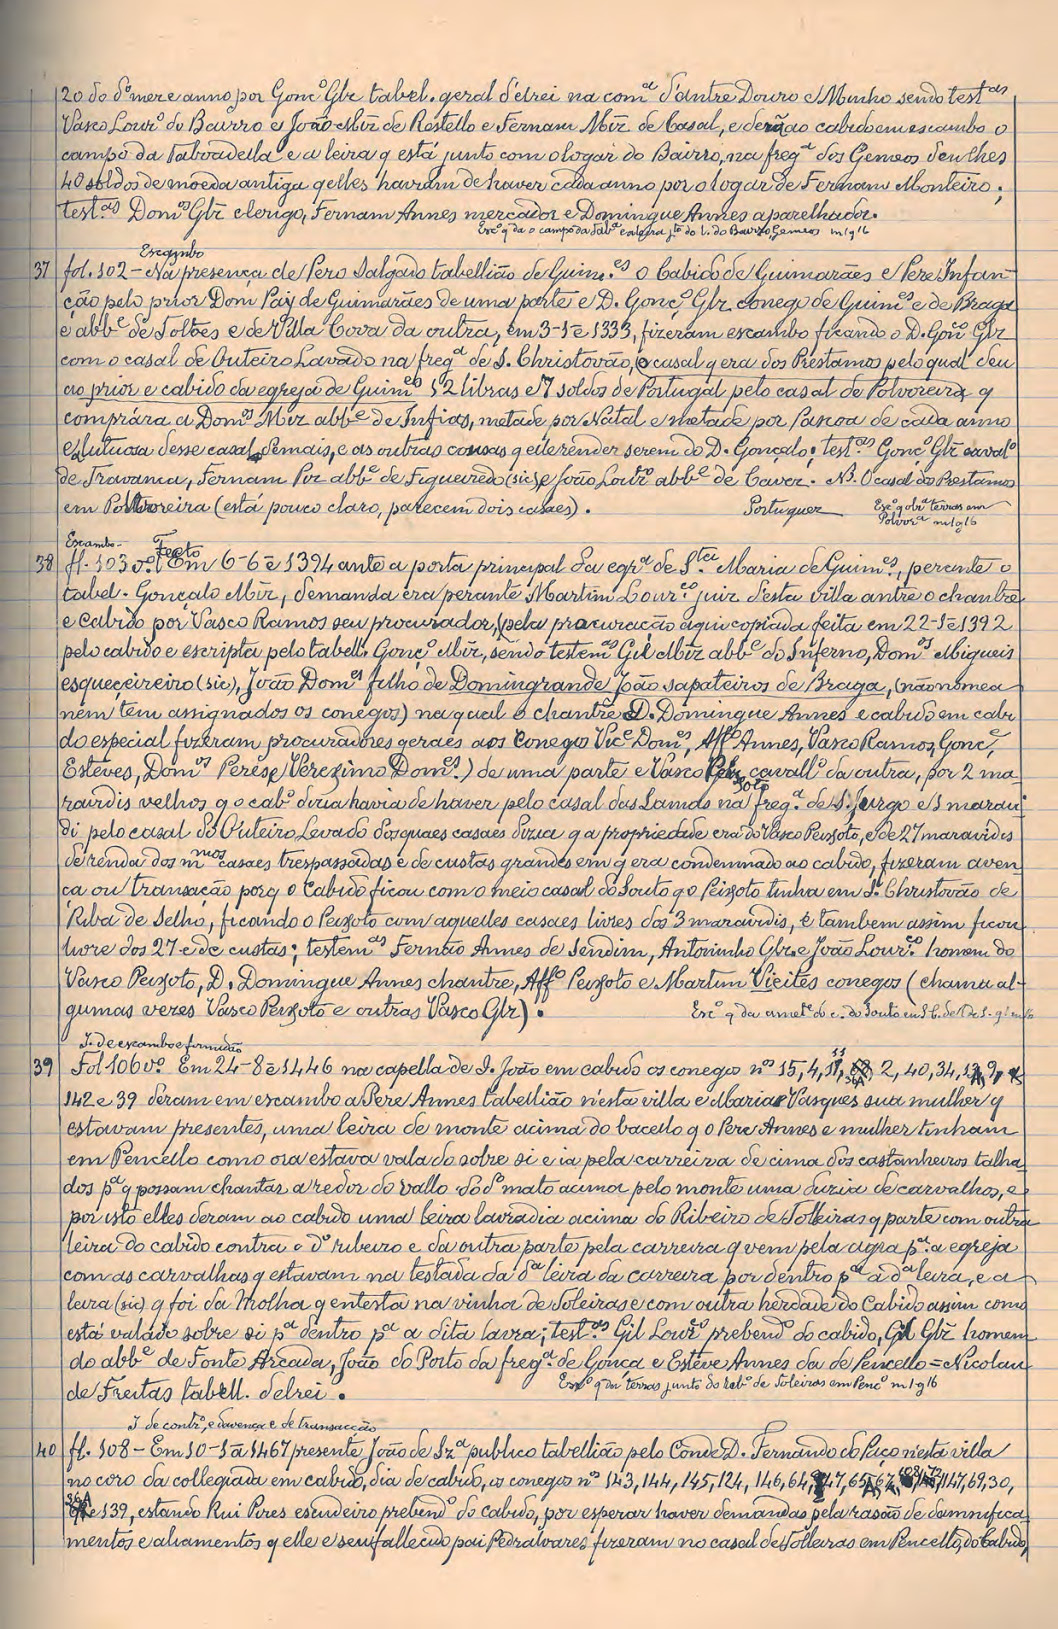 20 do dº mez e anno por Gonçº Glz tabel. geral d'elrei na comª d'antre Douro e Minho sendo testªs
Vasco Lourº do Bairro e João Miz de Rostello e Fernam Miz de Casal, e derão ao cabido em escambo o
campo da Taboadella e a leira q está junto com o logar do Bairro, na freqª dos Gemeos deu lhes
40 soldos de moeda antiga q elles haviam de haver cada anno por o logar de Fernam Monteiro;
testªs Domºs Glz clerigo, Fernam Annes mercador e Domingue Annes aparelhador.
Escº q da o campo da Tabª e a leira jtº do l. do Bairro, Gemeos m 1 g 16
Escambo
37 fol. 102 - Na presença de Pero Salgado tabellião de Guim.es o Cabido de Guimarães e Pere Infan-
ção pelo prior Dom Pay de Guimarães de uma parte e D. Gonçº Glz conego de Guimes e de Braga
e abbe de Tolões e de Villa Cova da outra, em 3-1-ª 1333, fizeram escambo ficando o D. Gonº Glz
com o casal de Outeiro Lavado na freqª de S. Christovão, o casal q era dos Prestamos pelo qual deu
ao prior e cabido da egreja de Guimes 12 libras e 7 soldos de Portugal pelo casal de Polvoreira q
comprára a Domºs Miz abbe de Infias, metade por Natal e metade por Pascoa de cada anno
e lutuosa desse casal, demais, e as outras cousas q elle render serem do D. Gonçalo; testªs Gonçº Glz cavalº
de Travanca, Fernam Piz abbe de Figueiredo (sic) e João Lourº abbe de Caver. NB. O casal dos Prestamos
em Polvoreira (está pouco claro, parecem dois casaes). Portuguez Escº q obrª terras em
Polvorª m 1 g 16
Escambo - Fecto
38 fl. 103 vº. Em 6-6-ª 1394 ante a porta principal da egrª de S.ta Maria de Guimes, perante o
tabel. Gonçalo Miz, demanda era perante Martim Lour.ço juiz d'esta villa antre o chantre
e cabido por Vasco Ramos seu procurador, (pela procuração aqui copiada feita em 22-1-ª 1392
pelo cabido e escripta pelo tabell. Gonçº Miz, sendo testemªs Gil Miz abbe do Inferno, Domºs Migueis
esqueçeireiro (sic), João Domes filho de Domingrande João sapateiros de Braga, (não nomea
nem tem assignados os conegos) na qual o chantre D. Domingue Annes e cabido em cabi
do especial fizeram procuradores geraes aos Conegos Vicº Domes, Affº Annes, Vasco Ramos, Gonçº
Esteves, Domºs Peres e Verezimo Domes.) de uma parte e Vasco cavallº da outra, por 2 ma
ravidis velhos q o cabº dizia havia de haver pelo casal das Lamas na freqª de S. Jurgo e 1 maravi
di pelo casal do Outeiro Levado dos quaes casaes dizia q a propriedade era do Vasco Peixoto, e de 27 maravidis
de renda dos mmos casaes trespassadas e de custas grandes em q era condemnado ao cabido, fizeram aven
ça ou transacção porq o Cabido ficou com o meio casal do Souto q o Peixoto tinha em S. Christovão de
Riba de Selho, ficando o Peixoto com aquelles casaes livres dos 3 maravidis, e tambem assim ficou
livre dos 27 e de custas; testemªs Fernão Annes de Sendim, Antoninho Glz e João Lour.ço homem do
Vasco Peixoto, D. Domingue Annes chantre, Affº Peixoto e Martim Vicites conegos (chama al-
gumas vezes Vasco Peixoto e outras Vasco Glz).
Escº q da ametº do c. do Souto em S.
T. de escambo e firmidão
39 Fol 106 vº. Em 24-8-ª 1446 na capella de S. João em cabido os conegos nºs 15, 4, 2, 40, 34,
142 e 39 deram em escambo a Pere Annes tabellião n'esta villa e Maria Vasques sua mulher q
estavam presentes, uma leira de monte acima do bacello q o Pere Annes e mulher tinham
em Pencello como ora estava valado sobre si e ia pela carreira de cima dos castanheiros talha
dos pª q possam chantar a redor do vallo do dº mato acima pelo monte uma duzia de carvalhos, e
por isto elles deram ao cabido uma leira lavradia acima do Ribeiro de Tolleiras q parte com outra
leira do cabido contra o dº ribeiro e da outra parte pela carreira q vem pela agra pª a egreja
com as carvalhas q estavam na testada da dª leira da carreira por dentro pª a dª leira, e a
leira (sic) q foi da Molha q entesta na vinha de Soleiras e com outra herdade do Cabido assim como
está valado sobre si pª dentro pª a dita lavra; testªs Gil Lourº prebendº do cabido, Gil Glz homem
do abbe de Fonte Arcada, João do Porto da freqª de Gonça e Esteve Annes da de Pencello = Nicolau
de Freitas tabell. delrei.
Escº q da terras junto do rabº de Soleiras em Pencº m 1 g 16
T de contrº, e davença e de transacção
40 fl. 108 - Em 10-1-ª 1467 presente João de Szª publico tabellião pelo Conde D. Fernando do Paço n'esta villa
no coro da collegiada em cabido, dia de cabido, os conegos nºs 143, 144, 145, 124, 146, 64, 147, 69, 30,
e 139, estando Rui Pires escudeiro prebendº do cabido, por esperar haver demandas pela rasão de damnifica
mentos e alhamentos q elle e seu fallecido pai Pedralvares fizeram no casal de Tolleiras em Pencello, do Cabido,